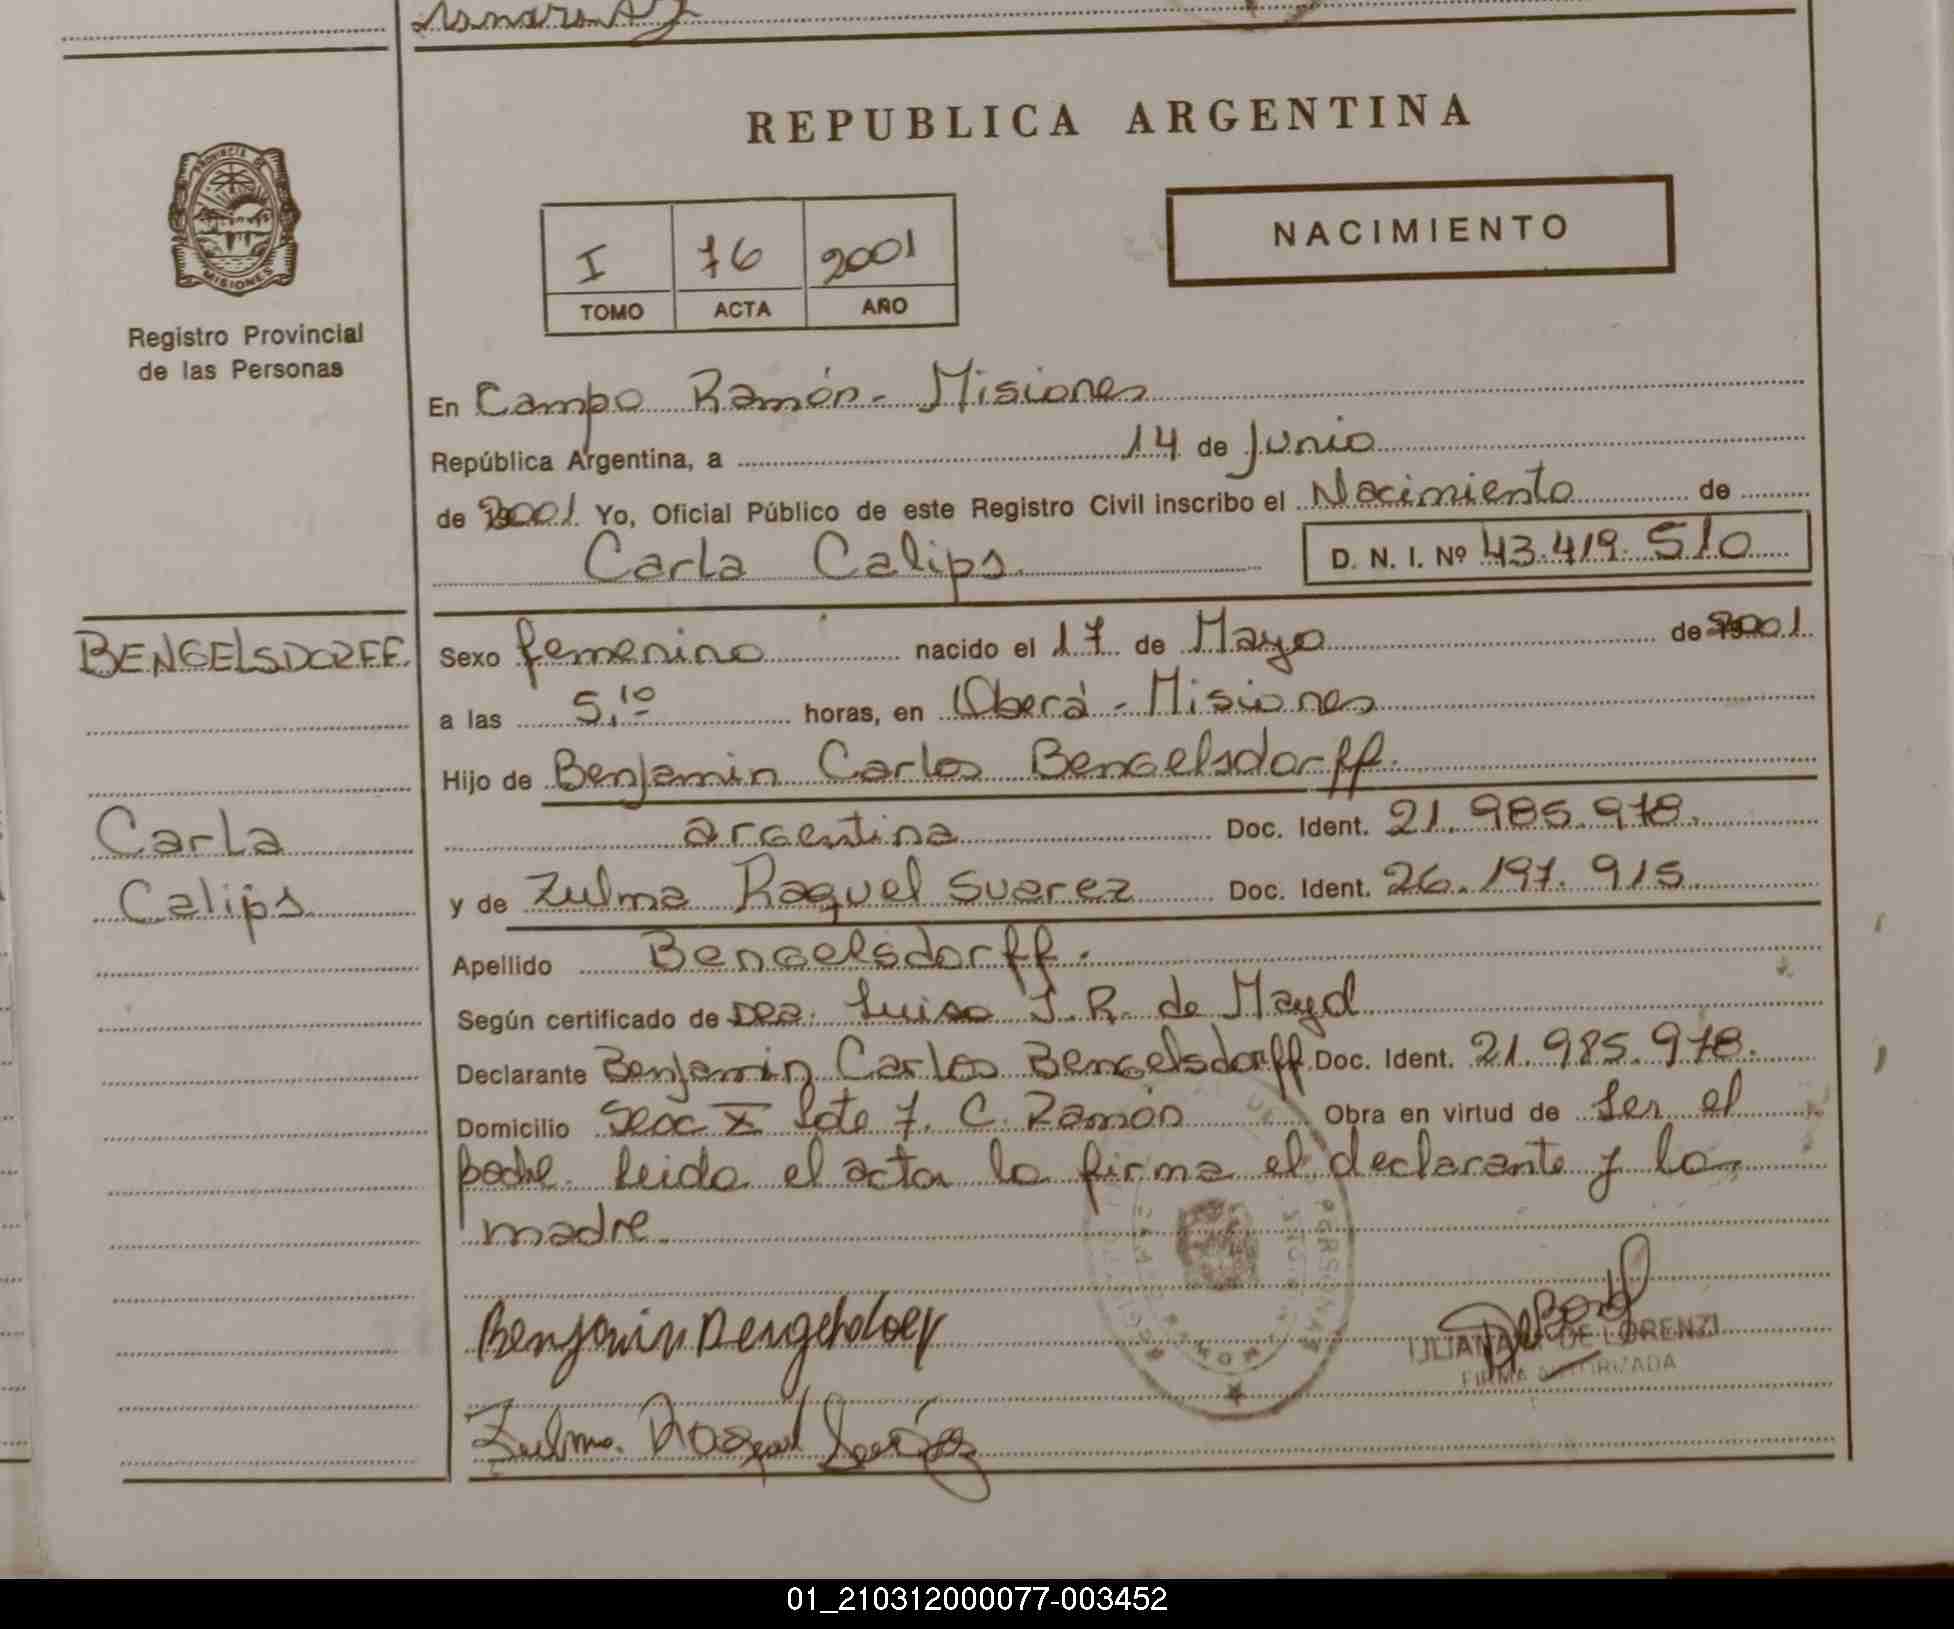 REPUBLICA ARGENTINA
PROVINCIA DE
MISIONES
Registro Provincial
de las Personas
I 76 2001
TOMO ACTA AÑO
NACIMIENTO
En Campo Ramón - Misiones
República Argentina, a 14 de Junio
de 2001 Yo, Oficial Público de este Registro Civil inscribo el Nacimiento de
Carla Calips D. N. I. Nº 43.419.510
BENGELSDORFF
Carla
Calips
Sexo femenino nacido el 17 de Mayo de 2001
a las 5,10 horas, en Oberá - Misiones
Hijo de Benjamin Carlos Bengelsdorff.
argentina Doc. Ident. 21.985.978.
y de Zulma Raquel Suarez Doc. Ident. 26.197.915
Apellido Bengelsdorff.
Según certificado de Dra. Luisa J. R. de Mayd
Declarante Benjamin Carlos Bengelsdorff Doc. Ident. 21.985.978.
Domicilio Secc X Lote 7. C. Ramón Obra en virtud de ser el
padre. Leida el acta la firma el declarante y la
madre
Benjamin
LILIANA DE LORENZI
FIRMA AUTORIZADA
Zulma Raquel Suarez
01_210312000077-003452